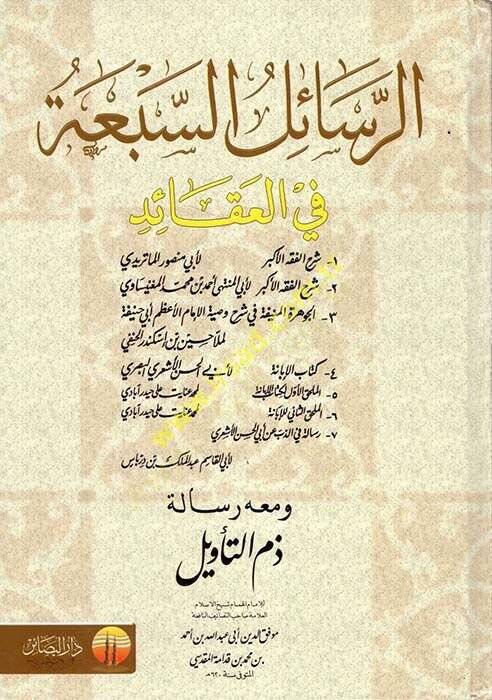 الرسائل السبعة
في العقائد
١- شرح الفقه الأكبر لأبي منصور الماتريدي
٢- شرح الفقه الأكبر لأبي المنتهى أحمد بن محمد المغنيساوي
٣- الجوهرة المنيفة في شرح وصية الإمام الأعظم أبي حنيفة
لملا حسين بن إسكندر الحنفي
٤- كتاب الإبانة لأبي الحسن الأشعري البصري
٥- الملحق الأول لكتاب الإبانة لمحمد عنايت علي حيدرآبادي
٦- الملحق الثاني للإبانة لمحمد عنايت علي حيدرآبادي
٧- رسالة في الذب عن أبي الحسن الأشعري
لأبي القاسم عبد الملك بن درباس
ومعه رسالة
ذم التأويل
للإمام الهمام شيخ الإسلام
العلامة صاحب التصانيف النافعة
موفق الدين أبي عبد الله بن أحمد
بن محمد بن قدامة المقدسي
المتوفى سنة ٦٢٠هـ
دار البصائر